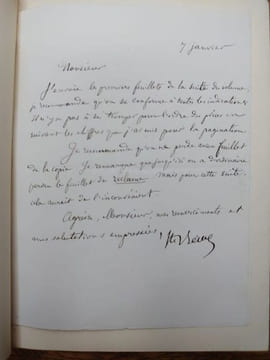 7 janvier
Monsieur
J'envoie les premiers feuillets de la suite du volume,
je recommande qu'on se conforme à toutes les indications
il n'y a pas à se tromper pour l'ordre des pièces en
suivant les chiffres que j'ai mis pour la pagination.
Je recommande qu'on ne perde aucun feuillet
de la copie. Je remarque que jusqu'ici on a d'ordinaire
perdu le feuillet de réclame. mais pour cette suite
cela aurait de l'inconvénient.
Agréez, Monsieur, mes remerciements et
mes salutations empressées,
Ste Beuve